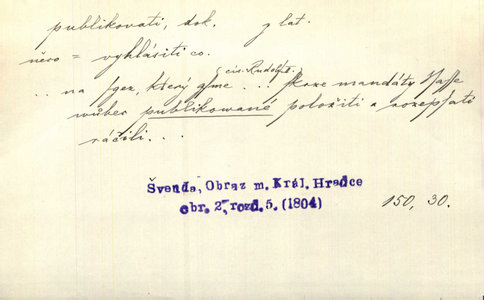 publikovati, dok. z lat.
něco = vyhlásiti co.
(cís. Rudolf)
.. na sgez, který gsme ... skrze mandáty Nasse
wůbec publikowané položiti a rozepsati
ráčili...
Švenda, Obraz m. Král. Hradce
obr. 2, rozd. 5. (1804)
150, 30.